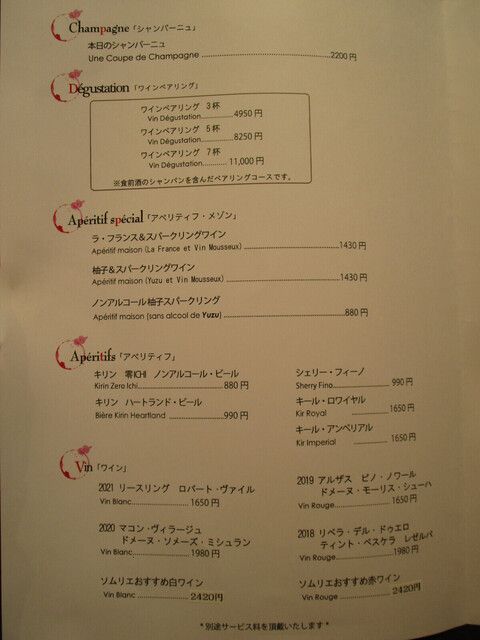 Champagne「シャンパーニュ」
本日のシャンパーニュ
Une Coupe de Champagne ........ 2200円
Dégustation「ワインペアリング」
ワインペアリング 3杯
Vin Dégustation.............. 4950 円
ワインペアリング 5杯
Vin Dégustation.............. 8250 円
ワインペアリング 7杯
Vin Dégustation............ 11,000 円
※食前酒のシャンパンを含んだペアリングコースです。
Apéritif spécial「アペリティフ・メゾン」
ラ・フランス&スパークリングワイン
Apéritif maison (La France et Vin Mousseux) ........ 1430 円
柚子&スパークリングワイン
Apéritif maison (Yuzu et Vin Mousseux) ........ 1430 円
ノンアルコール柚子スパークリング
Apéritif maison (sans alcool de Yuzu) ........ 880 円
Apéritifs「アペリティフ」
キリン 零ICHI ノンアルコール・ビール
Kirin Zero Ichi........ 880 円
キリン ハートランド・ビール
Bière Kirin Heartland ........ 990 円
シェリー・フィーノ
Sherry Fino........ 990 円
キール・ロワイヤル
Kir Royal ........ 1650 円
キール・アンペリアル
Kir Imperial ........ 1650 円
Vin「ワイン」
2021 リースリング ロバート・ヴァイル
Vin Blanc........ 1650 円
2020 マコン・ヴィラージュ
ドメーヌ・ソメーズ・ミシュラン
Vin Blanc........ 1980 円
ソムリエおすすめ白ワイン
Vin Blanc ........ 2420円
2019 アルザス ピノ・ノワール
ドメーヌ・モーリス・シューハ
Vin Rouge........ 1650 円
2018 リベラ・デル・ドゥエロ
ティント・ペスケラ レゼルバ
Vin Rouge........ 1980円
ソムリエおすすめ赤ワイン
Vin Rouge ........ 2420円
*別途サービス料を頂戴いたします*